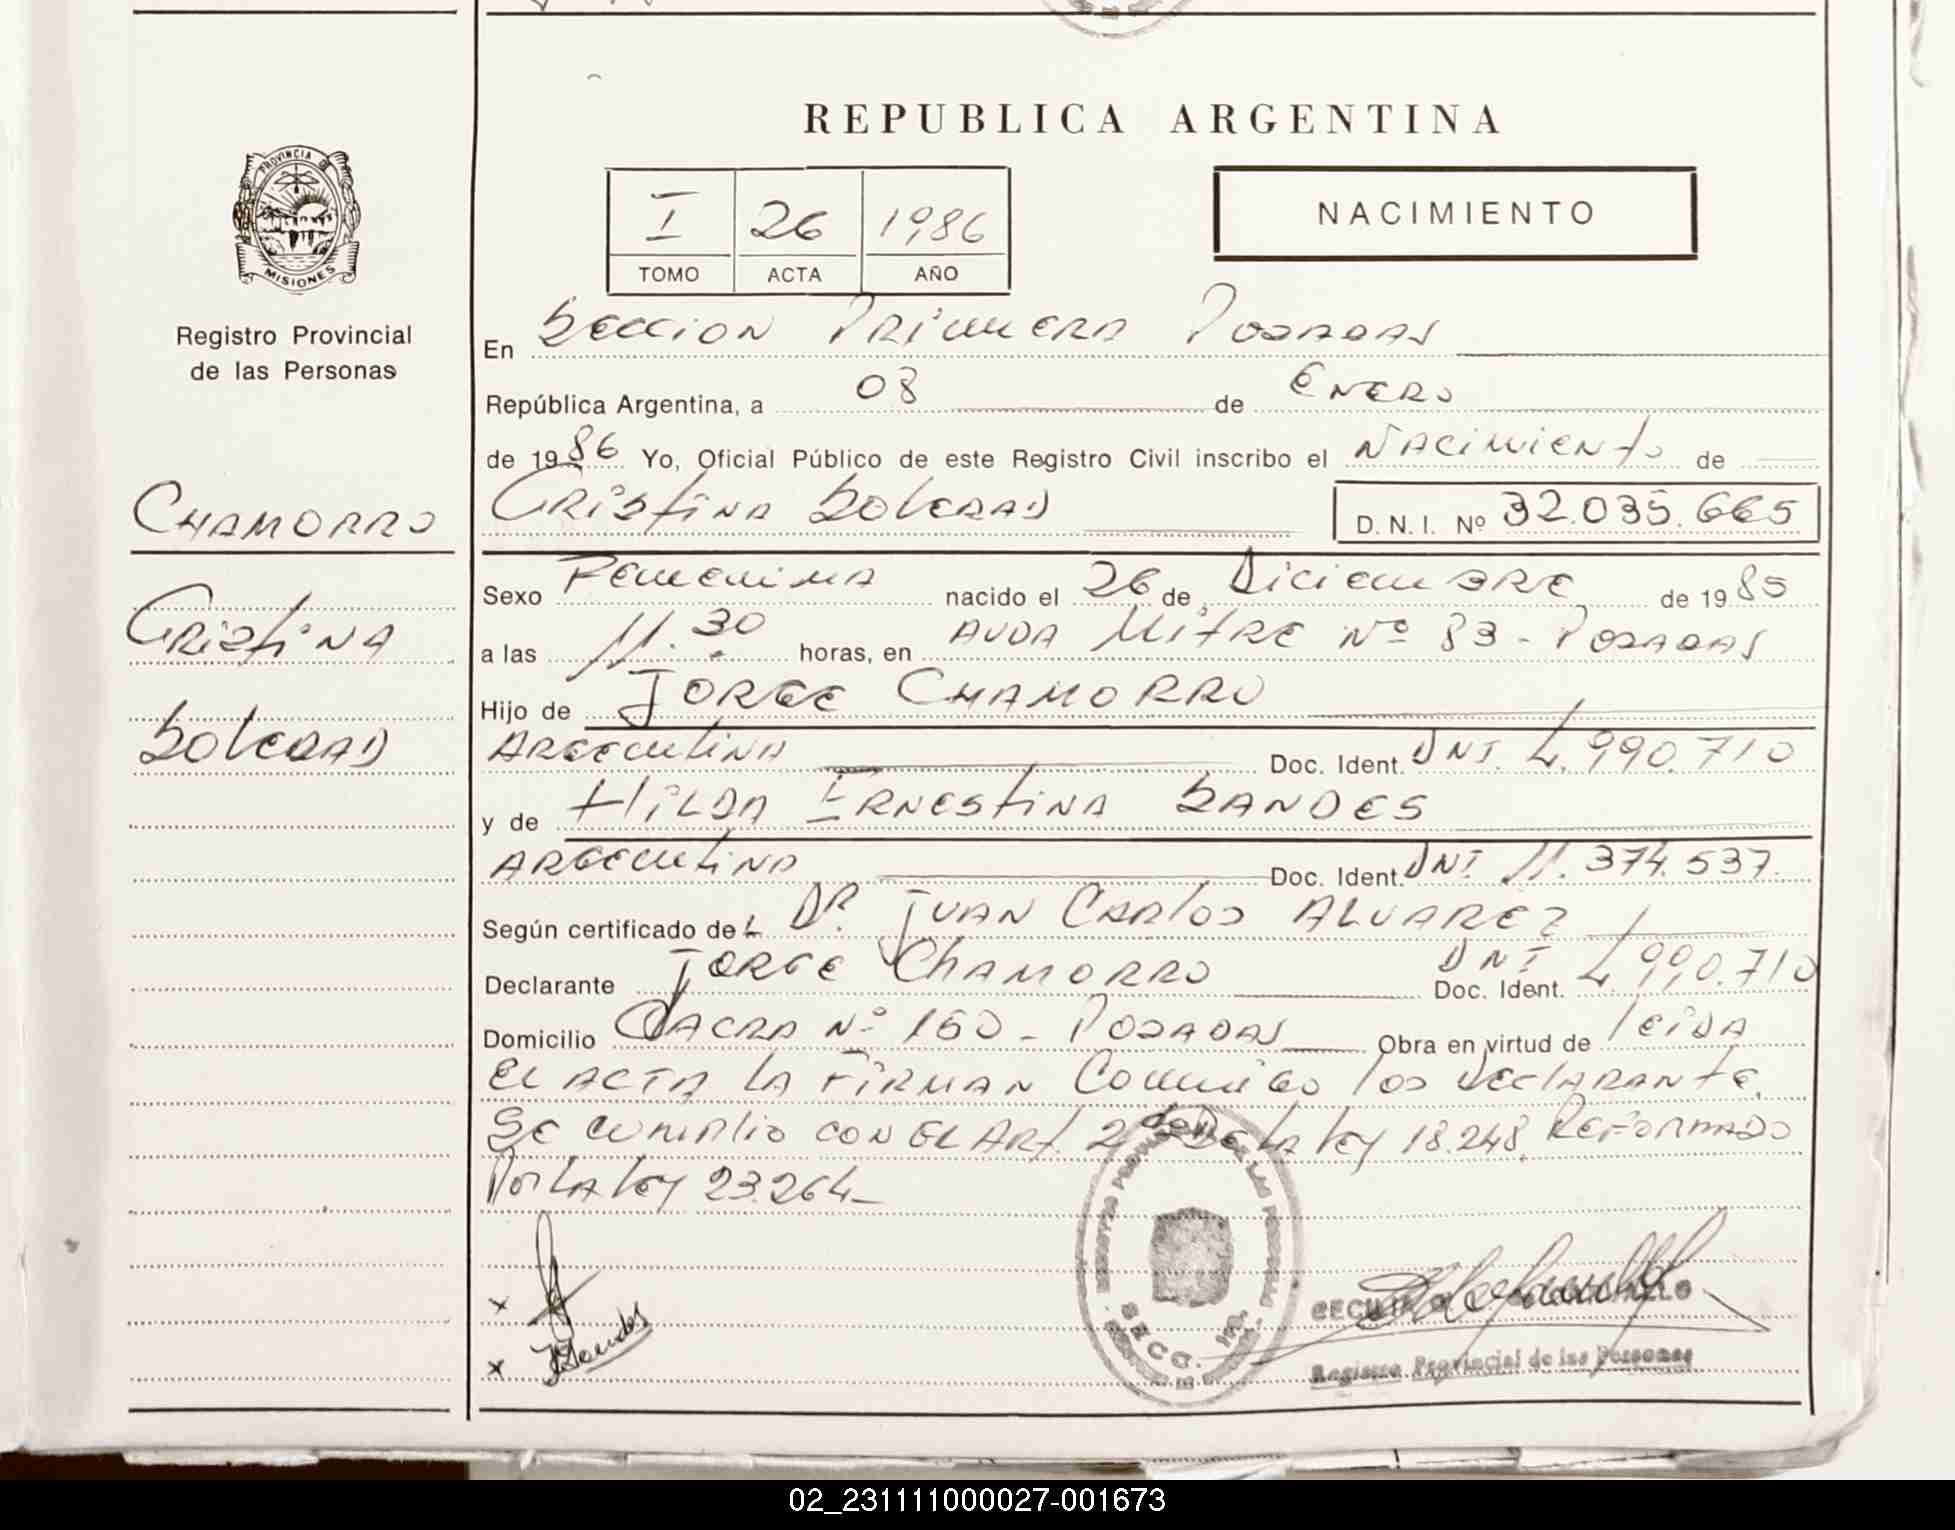 REPUBLICA ARGENTINA
PROVINCIA DE
MISIONES
Registro Provincial
de las Personas
I 26 1986
TOMO ACTA AÑO
NACIMIENTO
En Seccion Primera Posadas
República Argentina, a 08 de Enero
de 1986 Yo, Oficial Público de este Registro Civil inscribo el Nacimiento de
CHAMORRO
Cristina Soledad
D.N.I. Nº 32.035.665
Cristina
Soledad
Sexo Femenina nacido el 26 de Diciembre de 1985
a las 11.30 horas, en AVDA Mitre Nº 83 - Posadas
Hijo de JORGE CHAMORRO
Argentina Doc. Ident. DNI 4.990.710
y de HILDA ERNESTINA SANDES
Argentina Doc. Ident. DNI 11.374.537.
Según certificado del DR. Juan Carlos ALVAREZ
Declarante JORGE CHAMORRO DNI Doc. Ident. 4.990.710
Domicilio CHACRA Nº 160 - Posadas Obra en virtud de leida
el acta la firman conmigo los declarante.
Se cumplio con el Art. 2 de la ley 18.248 Reformado
Por la ley 23.264
x
x
SECC. 1ra.
CECILIA
Registro Provincial de las Personas
02_231111000027-001673